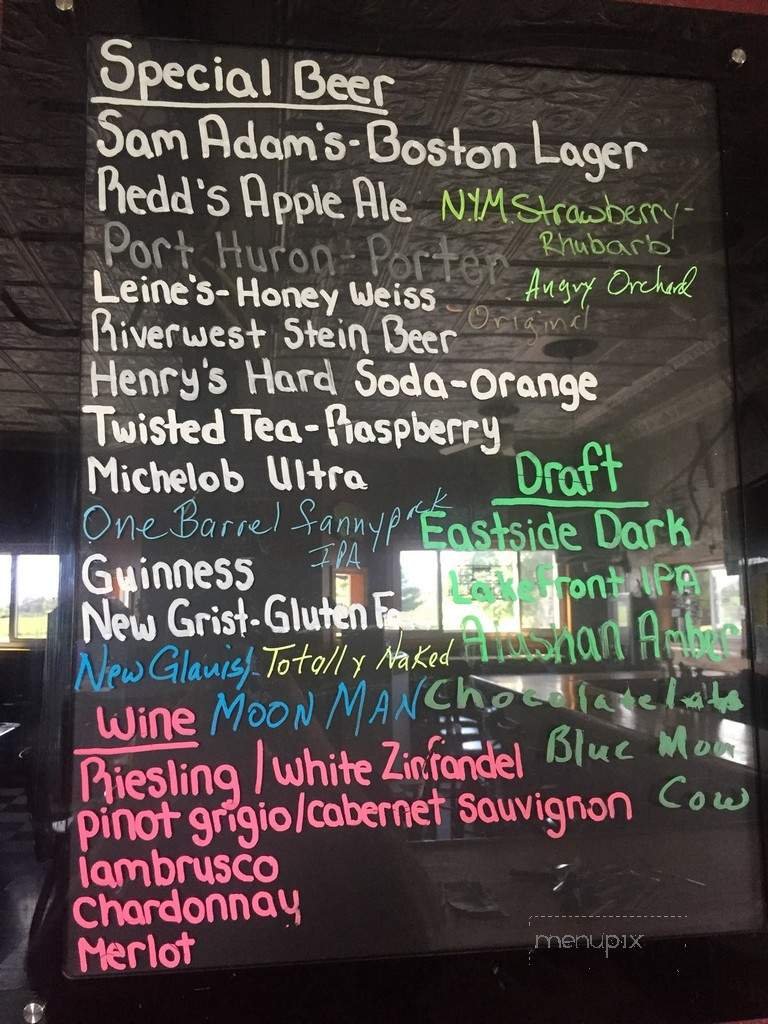 Special Beer
Sam Adam's-Boston Lager
Redd's Apple Ale
N.Y.M. Strawberry-
Rhubarb
Port Huron-Porter
Angry Orchard
Leine's-Honey Weiss
-Original
Riverwest Stein Beer
Henry's Hard Soda-Orange
Twisted Tea-Raspberry
Michelob Ultra
One Barrel fannypack
IPA
Guinness
New Grist-Gluten
New Glarus-Totally Naked
MOON MAN
Draft
Eastside Dark
Lakefront IPA
Alaskan Amber
Chocolate
Blue Moon
Cow
Wine
Riesling/white Zinfandel
pinot grigio/cabernet sauvignon
lambrusco
Chardonnay
Merlot
menupix